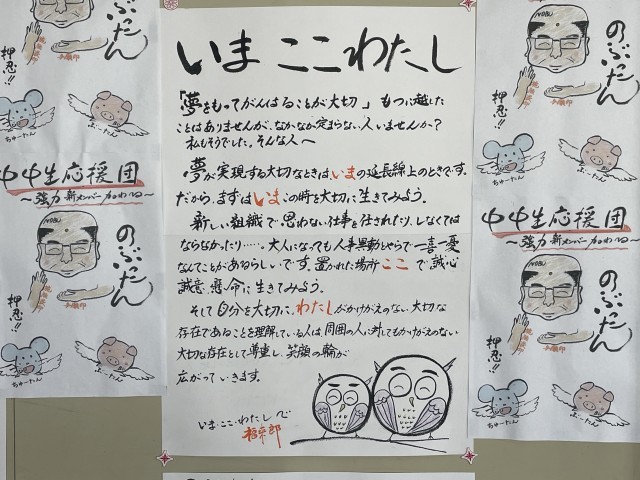 いま ここ わたし
「夢をもってがんばることが大切」もつに越した
ことはありませんが、なかなか定まらない人いませんか?
私もそうでした。そんな人へ
夢が実現する大切なときは、いまの延長線上のときです。
だから、まずはいまこの時を大切に生きてみよう。
新しい組織で思わない仕事を任されたり、しなくては
ならなかったり……。大人になっても人事異動とやらで一喜一憂
なんてことがあるらしいです。置かれた場所ここで、誠心
誠意、懸命に生きてみよう。
そして自分を大切に、わたしがかけがえのない大切な
存在であることを理解している人は周囲の人に対してもかけがえのない
大切な存在として尊重し、笑顔の輪が
広がっていきます。
いま・ここ・わたしで
福来郎
のぶったん
押忍!!
ちゅーたん
ぶーたん
中中生応援団
〜強力新メンバー加わる〜
NOBU
のぶったん
押忍!!
ちゅーたん
NOBU
のぶったん
押忍!!
ちゅーたん
ぶーたん
中中生応援団
〜強力新メンバー加わる〜
NOBU
のぶったん
押忍!!
ちゅーたん
ぶーたん